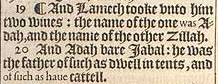 19 ¶ And Lamech tooke vnto him
two wiues : the name of the one was A-
dah, and the name of the other Zillah.
20 And Adah bare Jabal: he was
the father of such as dwell in tents, and
of such as haue cattell.